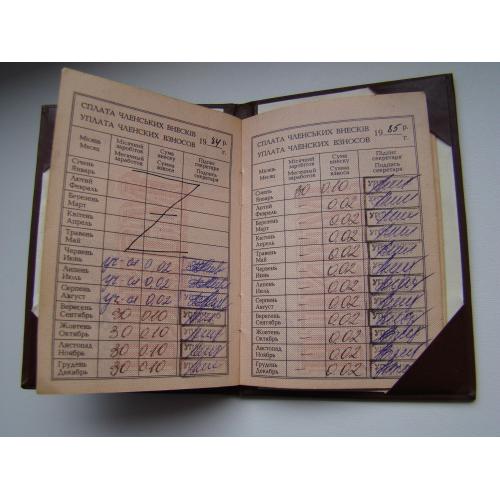 СПЛАТА ЧЛЕНСЬКИХ ВНЕСКІВ
УПЛАТА ЧЛЕНСКИХ ВЗНОСОВ
1984 р.
г.
Місяць
Месяц
Місячний заробіток
Месячный заработок
Сума внеску
Сумма взноса
Підпис секретаря
Подпись секретаря
Січень
Январь
Лютий
Февраль
Березень
Март
Квітень
Апрель
Травень
Май
Червень
Июнь уч-ся 0,02
Липень
Июль уч-ся 0,02
Серпень
Август уч-ся 0,02
Вересень
Сентябрь 30 0.10
Жовтень
Октябрь 30 0.10
Листопад
Ноябрь 30 0.10
Грудень
Декабрь 30 0.10
СПЛАТА ЧЛЕНСЬКИХ ВНЕСКІВ
УПЛАТА ЧЛЕНСКИХ ВЗНОСОВ
1985 р.
г.
Місяць
Месяц
Місячний заробіток
Месячный заработок
Сума внеску
Сумма взноса
Підпис секретаря
Подпись секретаря
Січень
Январь 30 0.10
Лютий
Февраль – 0.02
Березень
Март – 0.02
Квітень
Апрель – 0.02
Травень
Май – 0.02
Червень
Июнь – 0.02
Липень
Июль – 0.02
Серпень
Август – 0.02
Вересень
Сентябрь – 0.02
Жовтень
Октябрь – 0.02
Листопад
Ноябрь – 0.02
Грудень
Декабрь – 0.02